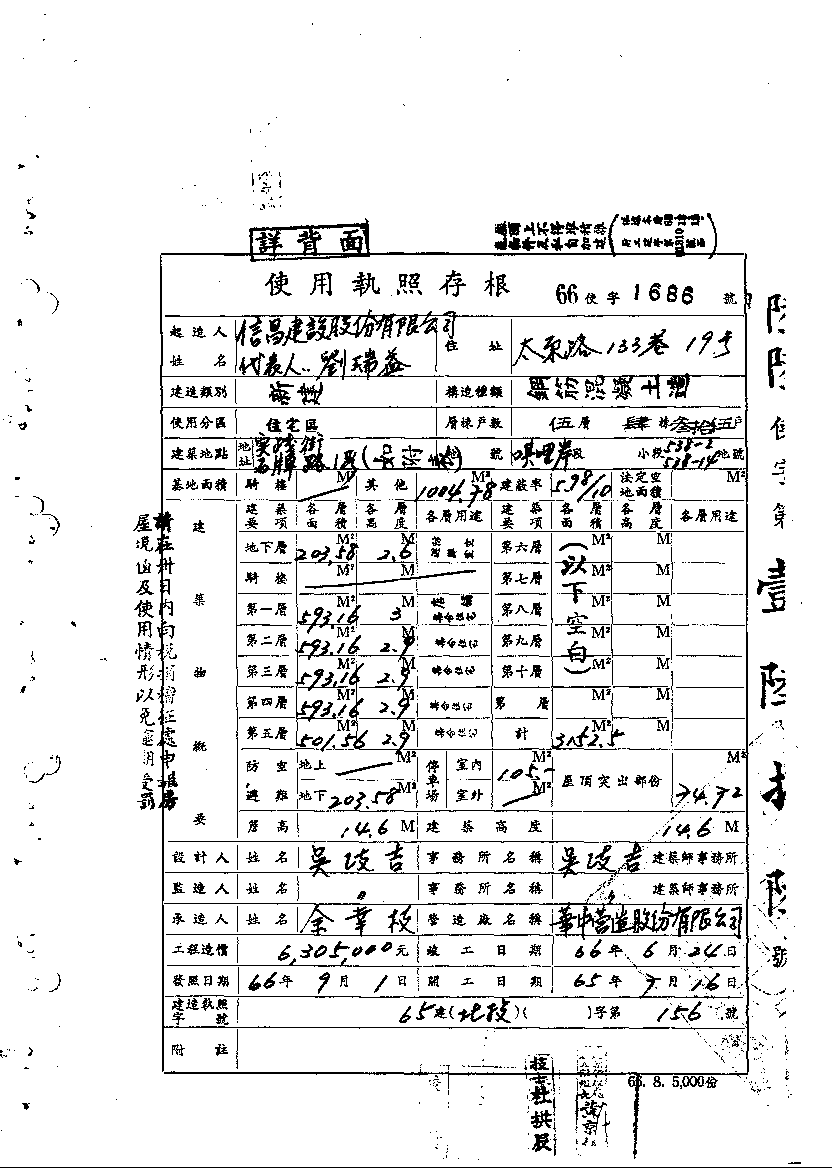 詳背面
使用執照存根 66使字1686號
起造人姓名 信昌建設股份有限公司 代表人:劉瑞益 住址 太原路133巷19号
建造類別 新建 構造種類 鋼筋混凝土造
使用分區 住宅區 層棟戶數 伍層 肆棟 叁拾伍戶
建築地點 地址 石牌路 地號 唭哩岸段 小段 538-2 538-14 地號
基地面積 騎樓 M² 其他 1004.78 M² 建蔽率 5.98/10 法定空地面積 M²
建築要項 各層面積 各層高度 各層用途 建築要項 各層面積 各層高度 各層用途
地下層 203.58 M² 2.6 M 第六層 M² M
騎樓 M² M 第七層 M² M
第一層 593.16 M² 3 M 第八層 M² M
第二層 593.16 M² 2.9 M 第九層 M² M
第三層 593.16 M² 2.9 M 第十層 M² M
第四層 593.16 M² 2.9 M 第 層 M² M
第五層 501.56 M² 2.9 M 計 3152.5 M² M
(以下空白)
建築物概要
防空避難 地上 M² 地下 203.58 M² 停車場 室內 105.- M² 室外 屋頂突出部份 74.72 M²
簷高 14.6 M 建築高度 14.6 M
設計人 姓名 吳政吉 事務所名稱 吳政吉 建築師事務所
監造人 姓名 事務所名稱 建築師事務所
承造人 姓名 余幸枝 營造廠名稱 華中營造股份有限公司
工程造價 6,305,000元 竣工日期 66年6月24日
發照日期 66年9月1日 開工日期 65年7月16日
建造執照字號 65建(北投)( )字第 156 號
附註
66. 8. 5,000份
技士杜拱辰
使字第壹
號